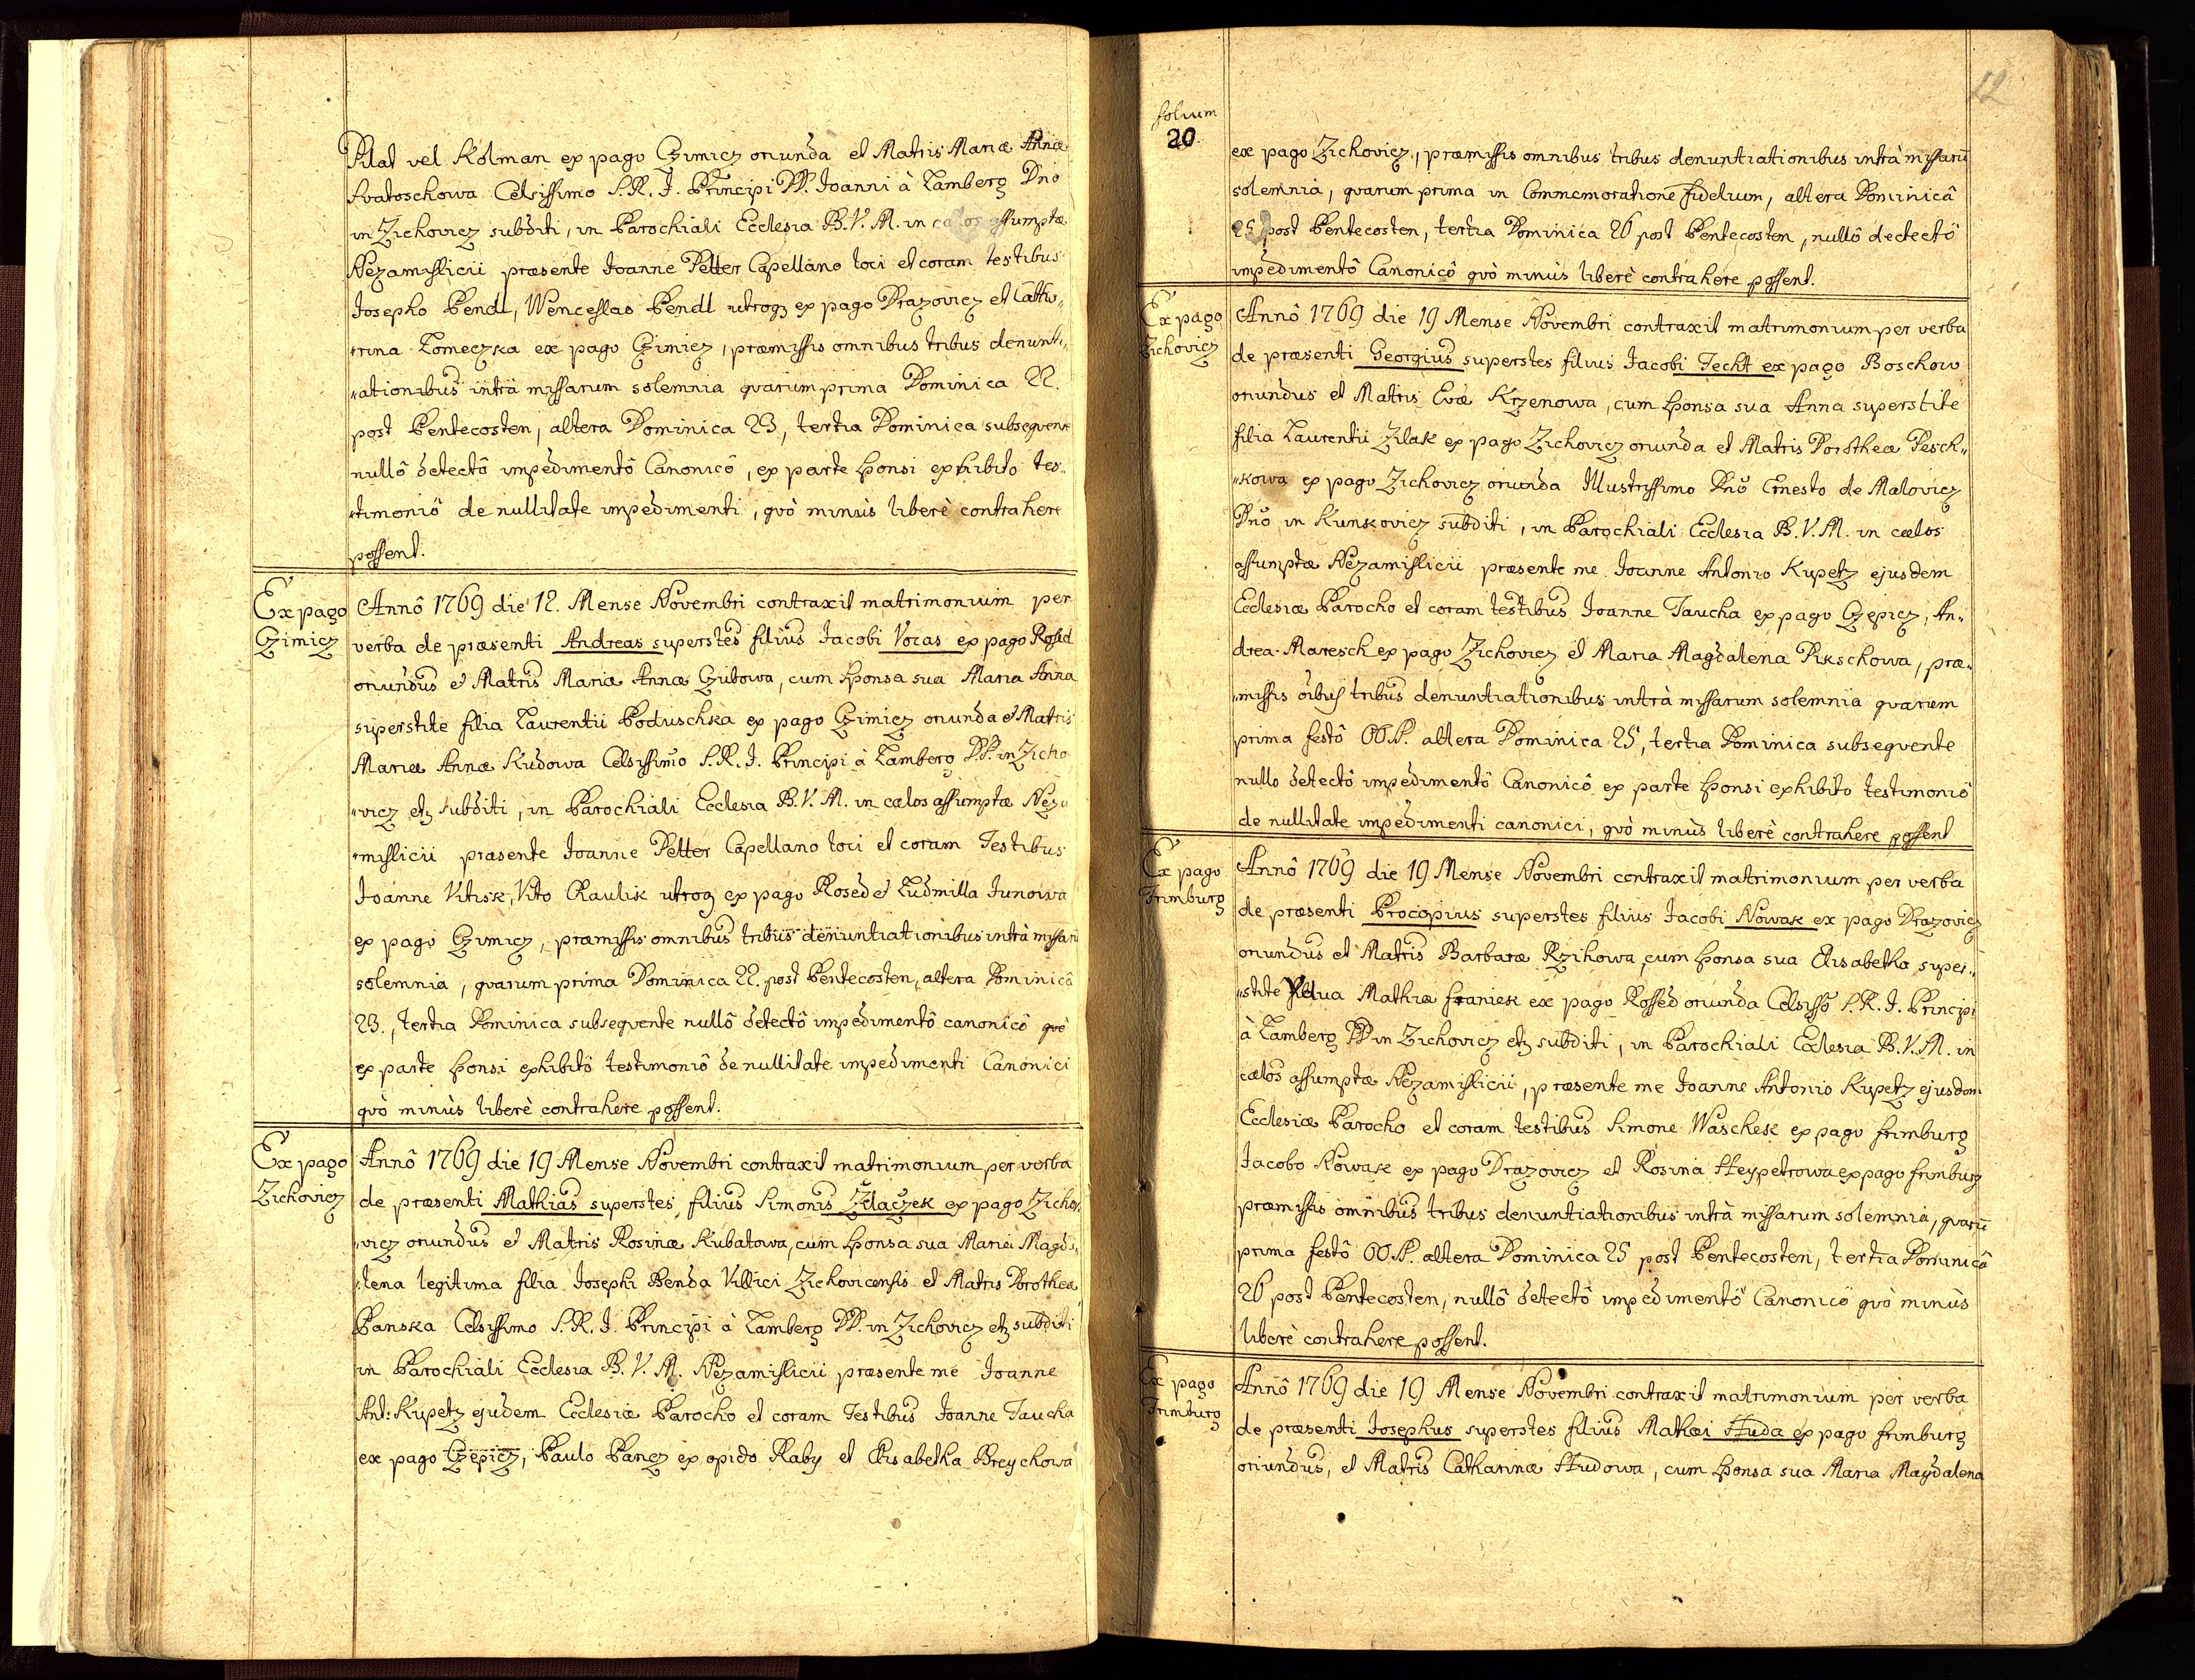 Pilat vel Kolman ex pago Czimicz oriunda et Matris Mariæ Annæ
Svatoschowa Celsissimo S. R. I. Principi DD. Joanni à Lamberg Dnõ
in Zichovicz subditi, in Parochiali Ecclesia B. V. M. in cælos assumptæ
Nezamislicii præsente Joanne Petter Capellano loci et coram testibus
Josepho Bendl, Wenceslao Bendl utrog ex pago Drazovicz et Catha„
„rina Tomeczka ex pago Czimicz, præmissis omnibus tribus denunti„
„ationibus intrà missarum solemnia quarum prima Dominica 22.
post Pentecosten, altera Dominica 23, tertia Dominica subsequente
nullô detectô impedimentô Canonicô, ex parte sponsi exhibito tes„
„timoniô de nullitate impedimenti, quò minùs liberè contrahere
possent.
Ex pago
Czimicz
Annô 1769 die 12. Mense Novembri contraxit matrimonium per
verba de præsenti Andreas superstes filius Jacobi Vocas ex pago Rossed
oriundus et Matris Mariæ Annæ Czibowa, cum sponsa sua Maria Anna
superstite filia Laurentii Poduschka ex pago Czimicz oriunda et Matris
Mariæ Annæ Kudowa Celsissimo S. R. I. Principi à Lamberg DD. in Zicho
„vicz etz subditi, in Parochiali Ecclesia B. V. M. in cælos assumptæ Neza
„mislicii præsente Joanne Petter Capellano loci et coram Testibus
Joanne Vitisk, Vito Raulik utrog ex pago Rosed et Ludmilla Junowa
ex pago Czimicz, præmissis omnibus tribus denuntiationibus intrà missarũ
solemnia, quarum prima Dominica 22. post Pentecosten, altera Dominicâ
23., tertia Dominica subsequente nullô detectô impedimentô canonicô quò
ex parte sponsi exhibitô testimoniô de nullitate impedimenti Canonici
quò minùs liberè contrahere possent.
Ex pago
Zichovicz
Annô 1769 die 19 Mense Novembri contraxit matrimonium per verba
de præsenti Mathias superstes filius Simonis Zilaczek ex pago Zicho„
„vicz oriundus et Matris Rosinæ Kubatowa, cum sponsa sua Maria Magda„
„lena legitima filia Josephi Benda Villici Zichovicensis et Matris Dorotheæ
Panska Celsissimo S. R. I. Principi à Lamberg DD. in Zichovicz etz subditi
in Parochiali Ecclesia B. V. M. Nezamislicii præsente me Joanne
Ant: Kupetz ejudem Ecclesiæ Parocho et coram Testibus Joanne Taucha
ex pago Czepicz, Paulo Pancz ex opido Raby et Elisabetha Breychowa
folium
20.
12
ex pago Zichovicz, præmissis omnibus tribus denuntiationibus intrà missarũ
solemnia, quarum prima in Commemoratione fidelium, altera Dominicâ
25 post Pentecosten, tertia Dominica 26 post Pentecosten, nullô dectectô
impedimentô Canonicô quò minùs liberè contrahere possent.
Ex pago
Zichovicz
Annô 1769 die 19 Mense Novembri contraxit matrimonium per verba
de præsenti Georgius superstes filius Jacobi Techt ex pago Boschow
oriundus et Matris Evæ Krzenowa, cum sponsa sua Anna superstite
filia Laurentii Zilak ex pago Zichovicz oriunda et Matris Dorotheæ Pesch„
„kowa ex pago Zichovicz oriunda Illustrissimo Dnõ Ernesto de Malovicz
Dnõ in Kunkovicz subditi, in Parochiali Ecclesia B. V. M. in cælos
assumptæ Nezamislicii præsente me Joanne Antonio Kupetz ejusdem
Ecclesiæ Parocho et coram testibus Joanne Taucha ex pago Czepicz, An„
drea Maresch ex pago Zichovicz et Maria Magdalena Pikschowa, præ„
„missis oĩbus tribus denuntiationibus intrà missarum solemnia quarum
prima festô OO. SS. altera Dominica 25, tertia Dominica subsequente
nullo detectô impedimentô Canonicô ex parte sponsi exhibito testimoniô
de nullitate impedimenti canonici, quò minùs liberè contrahere possent
Ex pago
Frimburg
Annô 1769 die 19 Mense Novembri contraxit matrimonium per verba
de præsenti Procopius superstes filius Jacobi Nowak ex pago Drazovicz
oriundus et Matris Barbaræ Rzihowa, cum sponsa sua Elisabetha super„
„stite Vidua Mathiæ Franiek ex pago Rossed oriunda Celsissõ S. R. I. Principi
à Lamberg DD in Zichovicz etz subditi, in Parochiali Eclesia B. V. M. in
cælos assumptæ Nezamislicii, præsente me Joanne Antonio Kupetz ejusdem
Ecclesiæ Parocho et coram testibus Simone Waschek ex pago Frimburg
Jacobo Nowak ex pago Drazovicz et Rosina Heypetrowa ex pago Frimburg
præmissis omnibus tribus denuntiationibus intrà missarum solemnia, quarũ
prima festô OO. SS. altera Dominica 25 post Pentecosten, tertia Dominicâ
26 post Pentecosten, nullô detectô impedimentô Canonicô quò minùs
liberè contrahere possent.
Ex pago
Frimburg
Annô 1769 die 19 Mense Novembri contraxit matrimonium per verba
de præsenti Josephus superstes filius Mathæi Huda ex pago Frimburg
oriundus, et Matris Catharinæ Hudowa, cum sponsa sua Maria Magdalena